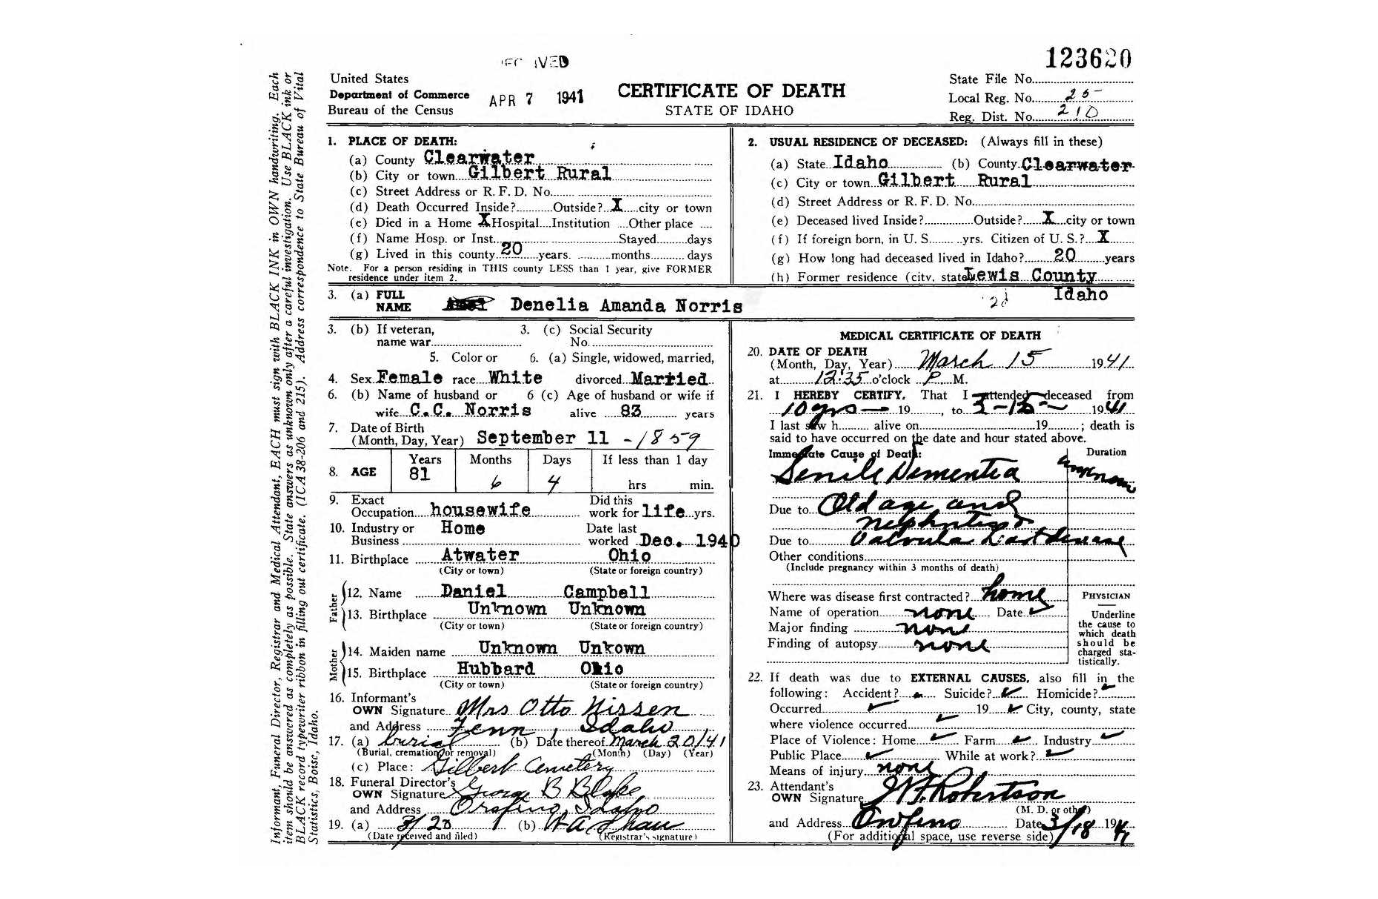 123620
IVED
United States
Department of Commerce
Bureau of the Census
APR 7 1941
CERTIFICATE OF DEATH
STATE OF IDAHO
State File No.
Local Reg. No. 25
Reg. Dist. No. 210
1. PLACE OF DEATH:
(a) County Clearwater
(b) City or town Gilbert Rural
(c) Street Address or R. F. D. No.
(d) Death Occurred Inside? Outside? X city or town
(e) Died in a Home X Hospital Institution Other place
(f) Name Hosp. or Inst. Stayed days
(g) Lived in this county 20 years. months days
Note. For a person residing in THIS county LESS than 1 year, give FORMER
residence under item 2.
2. USUAL RESIDENCE OF DECEASED: (Always fill in these)
(a) State Idaho (b) County Clearwater
(c) City or town Gilbert Rural
(d) Street Address or R. F. D. No.
(e) Deceased lived Inside? Outside? X city or town
(f) If foreign born, in U. S. yrs. Citizen of U. S.? X
(g) How long had deceased lived in Idaho? 20 years
(h) Former residence (city, state Lewis County
Idaho
3. (a) FULL
NAME Denelia Amanda Norris
3. (b) If veteran,
name war
3. (c) Social Security
No.
5. Color or 6. (a) Single, widowed, married,
4. Sex Female race White divorced Married
6. (b) Name of husband or 6 (c) Age of husband or wife if
wife C.C. Norris alive 83 years
7. Date of Birth
(Month, Day, Year) September 11 - 1859
8. AGE Years Months Days If less than 1 day
81 6 4 hrs min.
9. Exact
Occupation housewife
Did this
work for life yrs.
10. Industry or
Business Home
Date last
worked Dec. 1940
11. Birthplace Atwater Ohio
(City or town) (State or foreign country)
Father
12. Name Daniel Campbell
13. Birthplace Unknown Unknown
(City or town) (State or foreign country)
Mother
14. Maiden name Unknown Unkown
15. Birthplace Hubbard Ohio
(City or town) (State or foreign country)
16. Informant's
OWN Signature Mrs Otto Nissen
and Address Fenn, Idaho
17. (a) burial (b) Date thereof March 20/41
(Burial, cremation or removal) (Month) (Day) (Year)
(c) Place: Gilbert Cemetery
18. Funeral Director's
OWN Signature George B Blake
and Address Orofino, Idaho
19. (a) 3/20 (b)
(Date received and filed) (Registrar's signature)
MEDICAL CERTIFICATE OF DEATH
20. DATE OF DEATH
(Month, Day, Year) March 15 1941
at 12:35 o'clock P. M.
21. I HEREBY CERTIFY, That I attended deceased from
10 yrs — 19 , to 3-15- 1941
I last saw h alive on 19 ; death is
said to have occurred on the date and hour stated above.
Immediate Cause of Death: Duration
Senile Dementia
Due to Old age and
nephritis &
Due to
Other conditions
(Include pregnancy within 3 months of death)
Where was disease first contracted? home
Name of operation none Date
Major finding none
Finding of autopsy none
PHYSICIAN
Underline
the cause to
which death
should be
charged sta-
tistically.
22. If death was due to EXTERNAL CAUSES, also fill in the
following: Accident? Suicide? Homicide?
Occurred 19 City, county, state
where violence occurred
Place of Violence: Home Farm Industry
Public Place While at work?
Means of injury none
23. Attendant's
OWN Signature Robertson
(M. D. or other)
and Address Orofino Date 3/18 1941
(For additional space, use reverse side)
Informant, Funeral Director, Registrar and Medical Attendant, EACH must sign with BLACK INK in OWN handwriting. Each
item should be answered as completely as possible. State answers as unknown only after a careful investigation. Use BLACK ink or
BLACK record typewriter ribbon in filling out certificate. (ICA 38-206 and 215). Address correspondence to State Bureau of Vital
Statistics, Boise, Idaho.